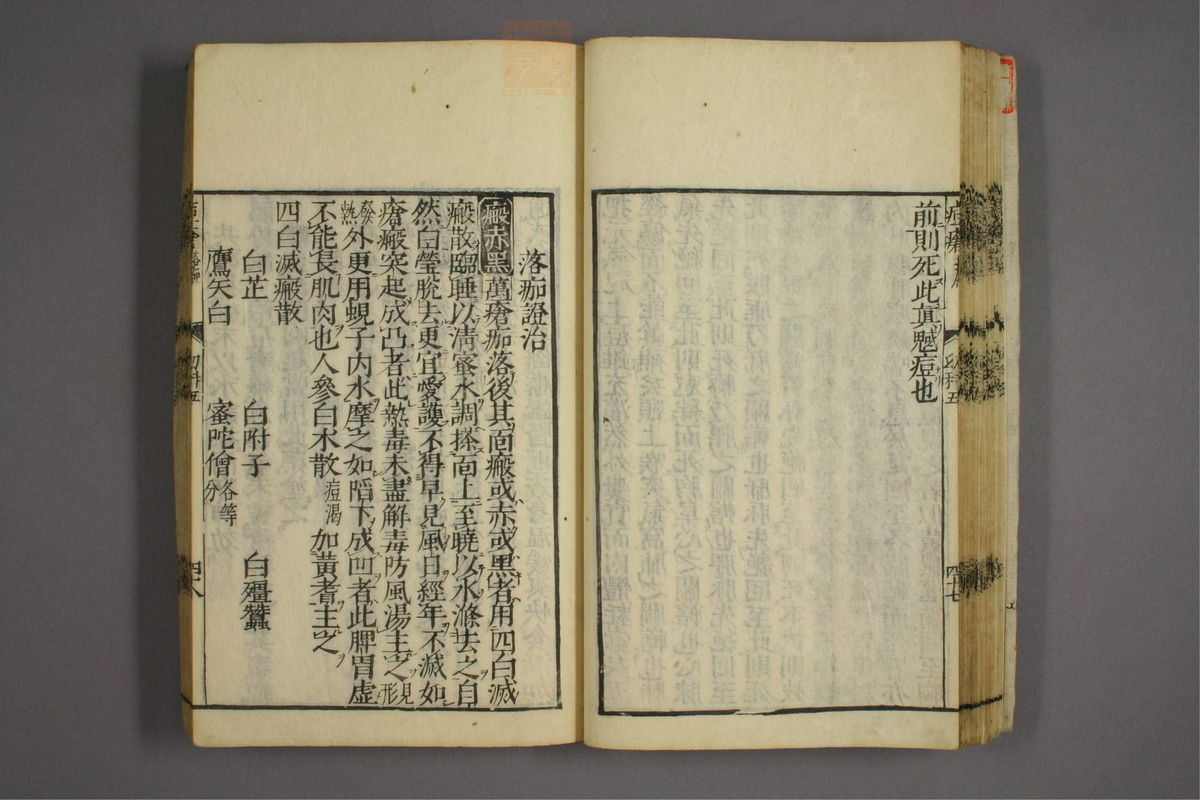 前則死此眞鬾痘也
四十七
落痂證治
瘢赤黑萬瘡痂落後其面瘢或赤或黑者用四白滅
瘢散臨睡以清蜜水調搽面上至曉以水滌去之自
然白瑩脫去更宜愛護不得早見風日經年不滅如
瘡瘢突起成凸者此熱毒未盡解毒防風湯主之見形
發熱外更用蜆子內水摩之如陷下成凹者此脾胃虛
不能長肌肉也人參白朮散痘渴加黃耆主之
四白滅瘢散
白芷 白附子 白殭蠶
鷹矢白 蜜陀僧各等分
四十八